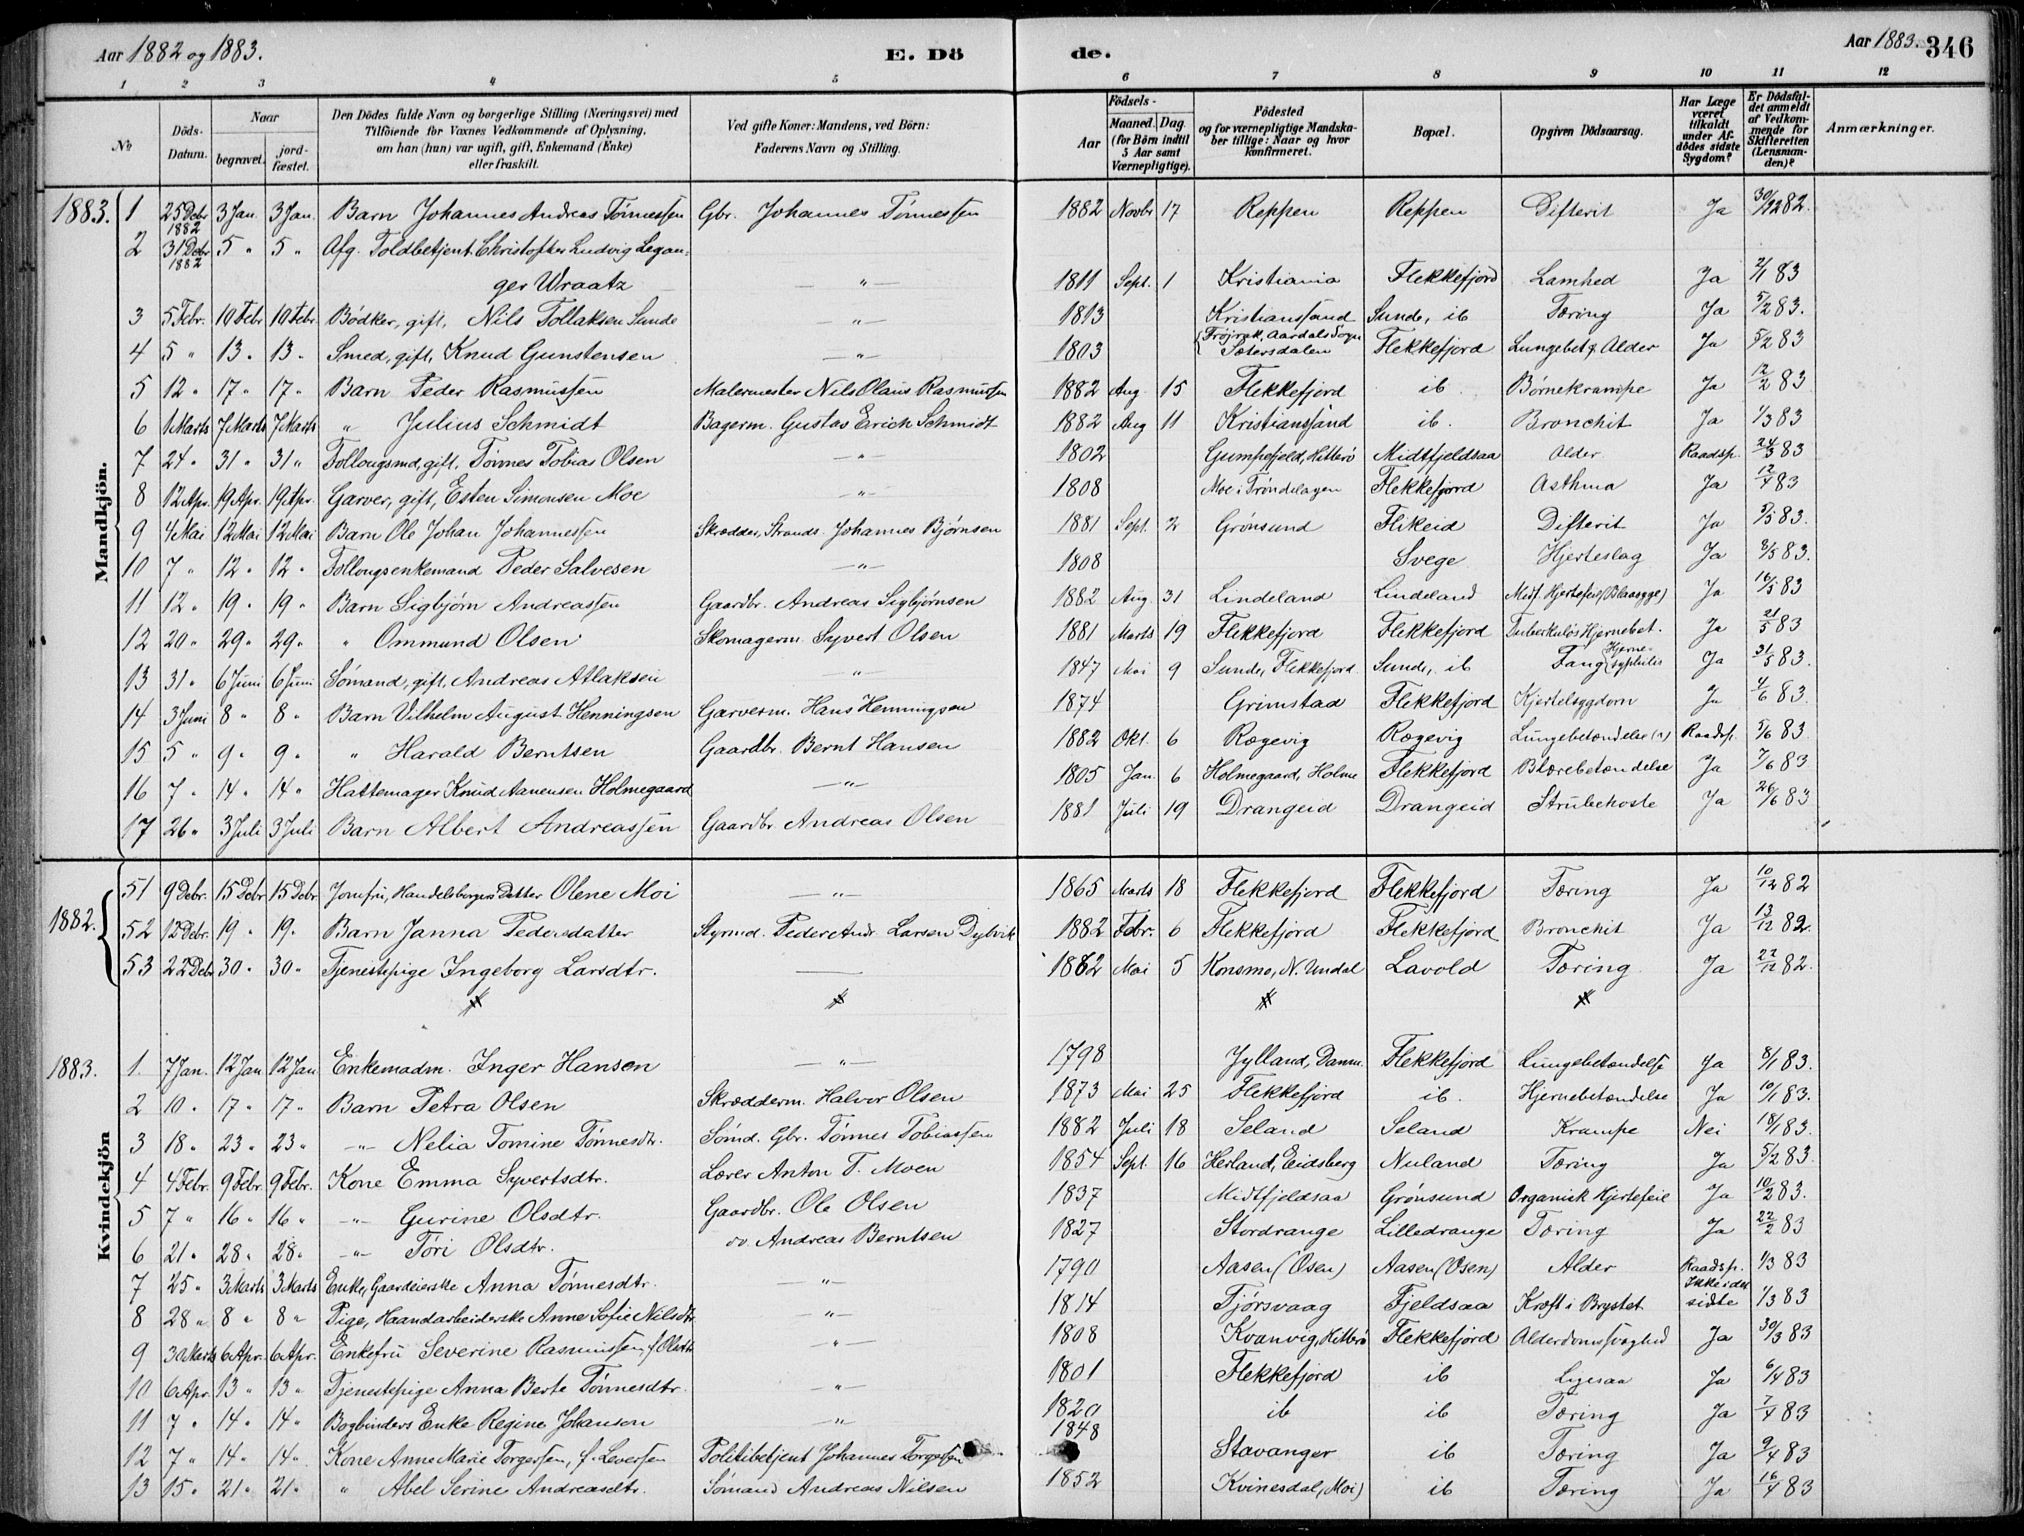 Aar 1882 og 1883. E. Dö de. Aar 1883. 346
1 2 3 4 5 6 7 8 9 10 11 12
No
Döds-Datum.
Naar
begravet. jordfæstet.
Den Dödes fulde Navn og borgerlige Stilling (Næringsvei) med
Tilföiende for Voxnes Vedkommende af Oplysning,
om han (hun) var ugift, gift, Enkemand (Enke)
eller fraskilt.
Ved gifte Koner: Mandens, ved Börn:
Faderens Navn og Stilling.
Födsels-
Aar Maaned. Dag.
(for Börn indtil 5 Aar samt Værnepligtige).
Födested
og for værnepligtige Mandskaber tillige: Naar og hvor konfirmeret.
Bopæl.
Opgiven Dödsaarsag.
Har Læge været tilkaldt under Afdödes sidste Sygdom?
Er Dödsfaldet anmeldt af Vedkommende for Skifteretten (Lensmanden)?
Anmærkninger.
Mandkjön.
1883. 1 25 Debr 1882 3 Jan. 3 Jan. Barn Johannes Andreas Tönnessen Gbr. Johannes Tönnessen 1882 Novbr 17 Reppen Reppen Difterit Ja 30/12 82.
2 31 Debr 1882 5 " 5 " Afg. Toldbetjent Christoffer Ludvig Legan=
ger Wraatz — " — 1811 Sept. 1 Kristiania Flekkefjord Lamhed Ja 2/1 83
3 5 Febr. 10 Febr 10 Febr. Bödker, gift, Nils Tollaksen Sunde — " — 1813 Kristianssand Sunde, ib Tæring Ja 5/2 83.
4 5 " 13 " 13 " Smed, gift, Knud Gunstensen — " — 1803 Aardals Sogn Sætersdalen Flekkefjord Lungebet. & Alder Ja 5/2 83
5 12 " 17 " 17 " Barn Peder Rasmussen Malermester Nils Olaus Rasmussen 1882 Aug. 15 Flekkefjord ib. Börnekrampe Ja 12/2 83
6 1 Marts 7 Marts 7 Marts " Julius Schmidt Bagerm. Gustav Erich Schmidt 1882 Aug 11 Kristianssand ib. Bronchit Ja 1/3 83
7 24 " 31 " 31 " Follougsmd, gift, Tönnes Tobias Olsen — " — 1802 Gumpefjeld, Hitterö Midtfjeldsaa Alder Raadsp. 24/3 83
8 12 Apr. 19 Apr. 19 Apr. Garver, gift, Esten Simonsen Moe — " — 1808 Moe i Tröndelagen Flekkefjord Asthma Ja 12/4 83
9 4 Mai 12 Mai 12 Mai Barn Ole Johan Johannessen Skrædder, Strands. Johannes Björnsen 1881 Sept. 2 Grönsund Flikeid Difterit Ja 5/5 83.
10 7 " 12 " 12 " Follougsenkemand Peder Salvesen — " — 1808 Svege Hjerteslag Ja 8/5 83.
11 12 " 19 " 19 " Barn Sigbjörn Andreassen Gaardbr. Andreas Sigbjörnsen 1882 Aug. 31 Lindeland Lindeland Medf. Hjertefeil (Blaasyge) Ja 16/5 83
12 20 " 29 " 29 " " Ommund Olsen Skomagerm. Syvert Olsen 1881 Marts 19 Flekkefjord Flekkefjord Tuberkulös Hjernebet. Ja 21/5 83
13 31 " 6 Juni 6 Juni Sömand, gift, Andreas Atlaksen — " — 1847 Mai 9 Sunde, Flekkefjord Sunde, ib Hjernesyphilis Ja 31/5 83.
14 3 Juni 8 " 8 " Barn Vilhelm August Henningsen Garverm. Hans Henningsen 1874 Grimstad Flekkefjord Kjertelsygdom Ja 4/6 83.
15 5 " 9 " 9 " " Harald Berntsen Gaardbr. Bernt Hansen 1882 Okt. 6 Rægevig Rægevig Lungebetændelse (?) Raadsp. 5/6 83.
16 7 " 14 " 14 " Hattemager Knud Aanensen Holmegaard — " — 1805 Jan. 6 Holmegaard, Holme Flekkefjord Blærebetændelse Ja 7/6 83
17 26 " 3 Juli 3 Juli Barn Albert Andreassen Gaardbr Andreas Olsen 1881 Juli 19 Drangeid Drangeid Strubehoste Ja 26/6 83
Kvindekjön
1882. 51 9 Debr. 15 Debr 15 Debr Jomfru, Handelsborgers Datter Olene Moi — " — 1865 Marts 18 Flekkefjord Flekkefjord Tæring Ja 10/12 82
52 12 Debr. 19 " 19 " Barn Janna Pedersdatter Styrmd. Peder Andr. Larsen Dybvik 1882 Febr. 6 Flekkefjord Flekkefjord Bronchit Ja 13/12 82.
53 22 Debr 30 " 30 " Tjenestepige Ingeborg Larsdtr. — 1862 Mai 5 Konsmo, N. Undal Lavold Tæring Ja 22/12 82.
1883. 1. 7 Jan. 12 Jan 12 Jan Enkemadm. Inger Hansen — " — 1798 Jylland, Danm. Flekkefjord Lungebetændelse Ja 8/1 83.
2 10 " 17 " 17 " Barn Petra Olsen Skrædderm. Halvor Olsen 1873 Mai 25 Flekkefjord ib. Hjernebetændelse Ja 10/1 83.
3 18 " 23 " 23 " — " — Nelia Tomine Tönnesdtr. Sömd. Gbr. Tönnes Tobiassen 1882 Juli 18 Seland Seland Krampe Nei 18/1 83.
4 4 Febr. 9 Febr. 9 Febr. Kone Emma Syvertsdtr. Lærer Anton T. Moen 1854 Sept. 16 Herland, Eidsberg Nuland Tæring Ja 5/2 83.
5 7 " 16 " 16 " — " — Gurine Olsdtr. Gaardbr. Ole Olsen 1837 Midtfjeldsaa Grönsund Organisk Hjertefeil Ja 10/2 83.
6 21 " 28 " 28 " — " — Tori Olsdtr. Andreas Berntsen 1827 Stordrange Lilledrange Tæring Ja 22/2 83
7 25 " 3 Marts 3 Marts Enke, Gaardeierske Anna Tönnesdtr. — " — 1790 Aasen (Osen) Aasen (Osen) Alder Raadsp. 1/3 83
8 28 " 8 " 8 " Pige, Haandarbeiderske Anne Sofie Nilsdtr — " — 1814 Tjörsvaag Fjeldsaa Kræft i Brystet Ikke i det sidste 1/3 83
9 30 Marts 6 Apr. 6 Apr. Enkefru Severine Rasmussen, f. Olsdtr — " — 1808 Kvanvig, Hitterö Flekkefjord Alderdomssvaghed Ja 30/3 83
10 6 Apr. 13 " 13 " Tjenestepige Anna Berte Tönnesdtr. — " — 1801 Flekkefjord ib Ligesaa Ja 6/4 83
11 7 " 14 " 14 " Bogbinders Enke Regine Johansen — " — 1820 ib ib Tæring Ja 7/4 83
12 7 " 14 " 14 " Kone Anne Marie Torgersen, f. Leversen Politibetjent Johannes Torgersen 1848 Stavanger ib Tæring Ja 9/4 83
13 15 " 21 " 21 " " Abel Serine Andreasdtr. Sömand Andreas Nilsen 1852 Kvinesdal, (Moi) ib Tæring Ja 16/4 83